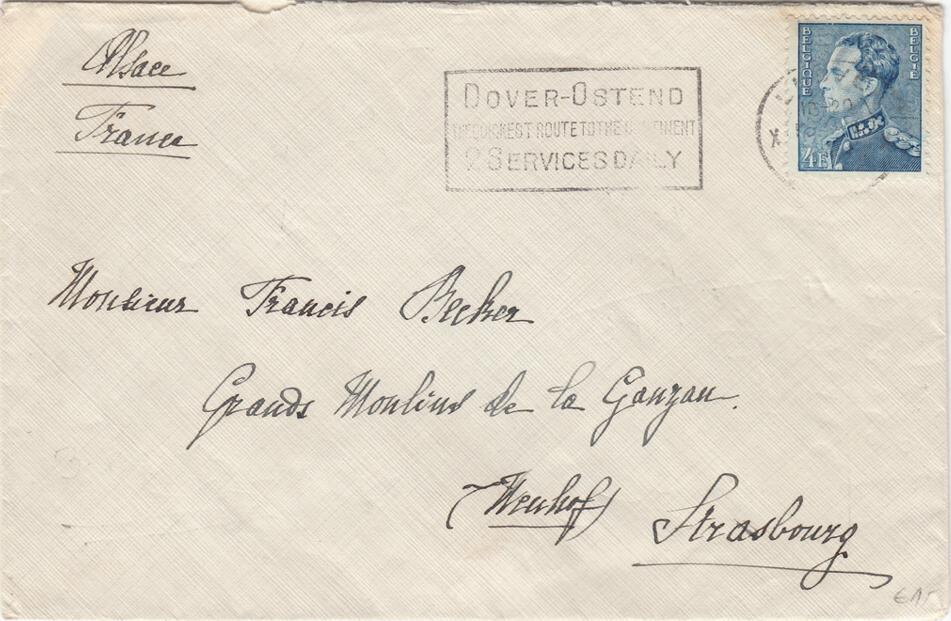 Alsace
France
DOVER-OSTEND
THE QUICKEST ROUTE TO THE CONTINENT
2 SERVICES DAILY
BELGIQUE
BELGIE
4F
X
Monsieur Francis Becker
Grands Moulins de la Ganzau.
(Neuhof) Strasbourg